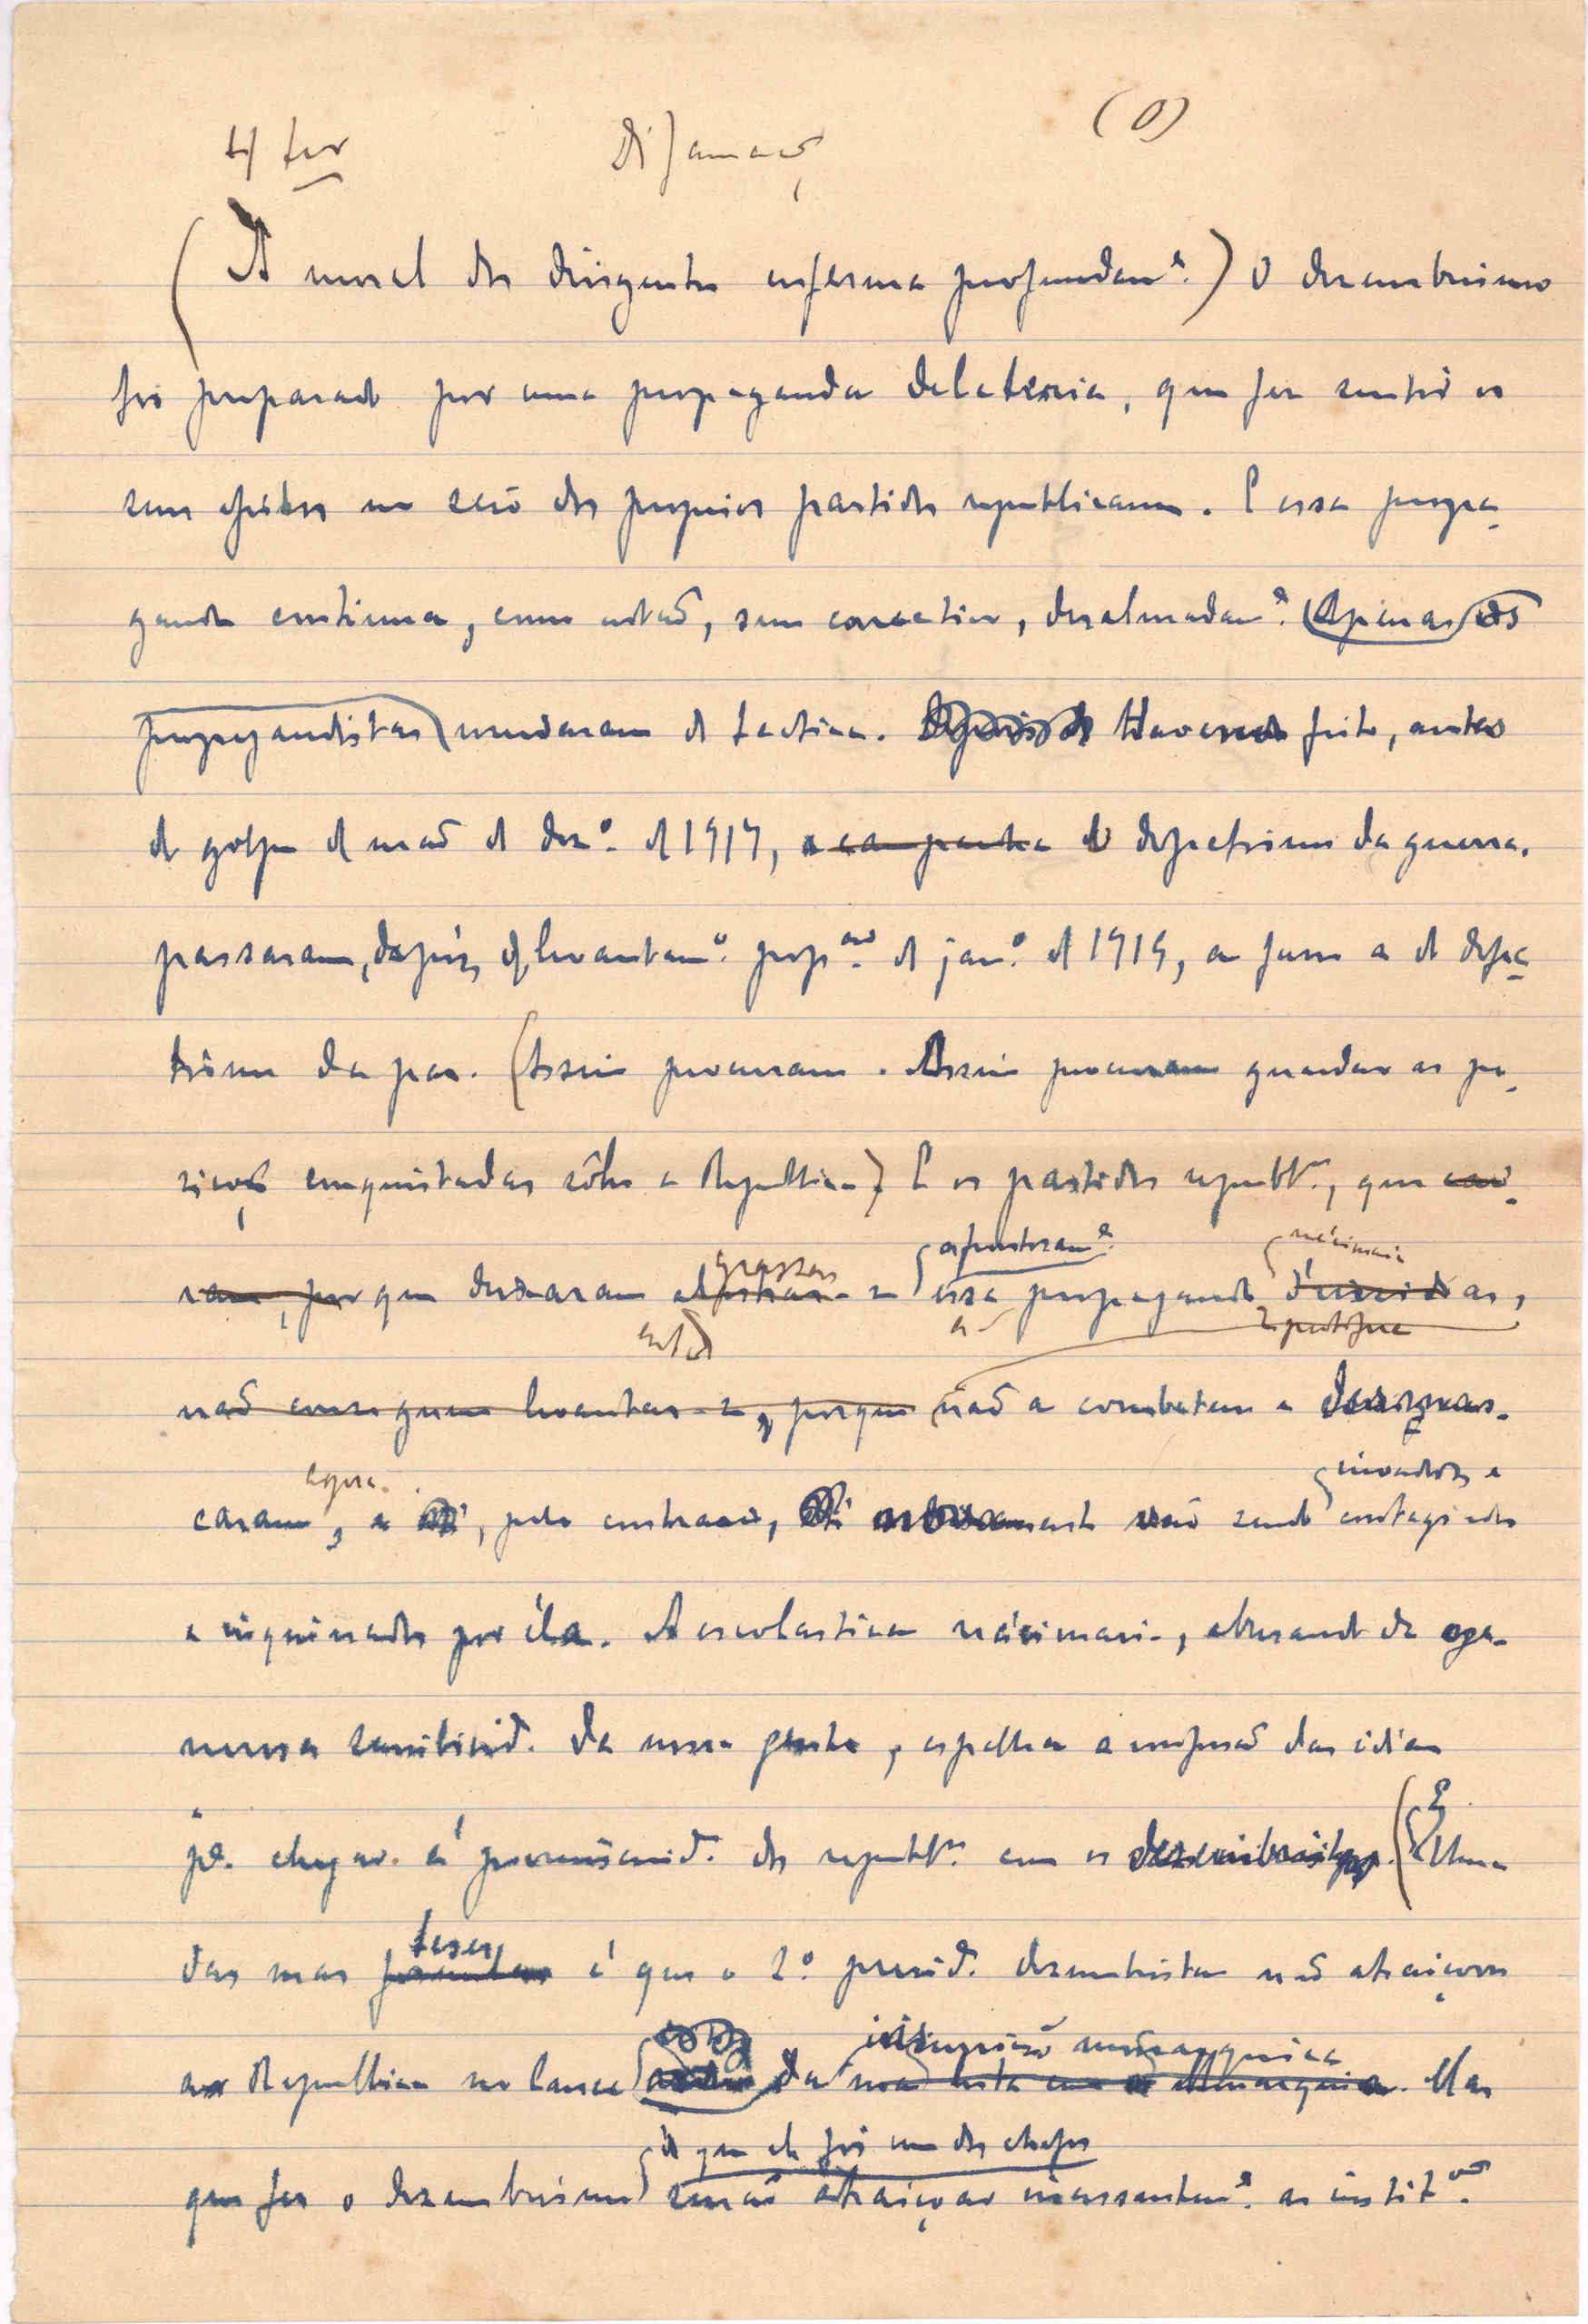 4 ter Difamação (O)
(A moral dos dirigentes enferma profundam.e) O dezembrismo
foi preparado por uma propaganda deleteria, que fez sentir os
seus efeitos no seio dos proprios partidos republicanos. E essa propa-
ganda continua, como então, sem correctivo, desalmadam.e Apenas os
propagandistas mudaram de tactica. Depois de Havendo feito, antes
do golpe de mão de dez.o de 1917, a campanha do defetismo da guerra,
passaram, depois do levantam.o pop.ar de jan.o de 1919, a fazer a do defe-
tismo da paz. (Assim procuram. Assim procuram guardar as po-
sições conquistadas sôbre a Republica) E os partidos republ.os, que caí-
ram, porque deixaram alastrar-se grassar essa propaganda sidonista
não conseguem levantar-se, porque não a combatem e desmas-
caram, agora. pelo contrario, sendo invadidos e contagiados
e inquinados por éla. A escolastica maximari-, abusando da
nossa sensibilid.e da nossa gente, espalha a confusão das ideias
pa. chegar á promiscuid.e dos republ.os com os dezembristas. (E Uma
das suas teses é que o 2.o presid.e dezembrista não atraiçoou
a Republica no lance da sua luta com a Monarquia incursão monarquica. Mas
que fez o dezembrismo de que ele foi um dos chefes senão atraiçoar incessantem.e as instit.ões